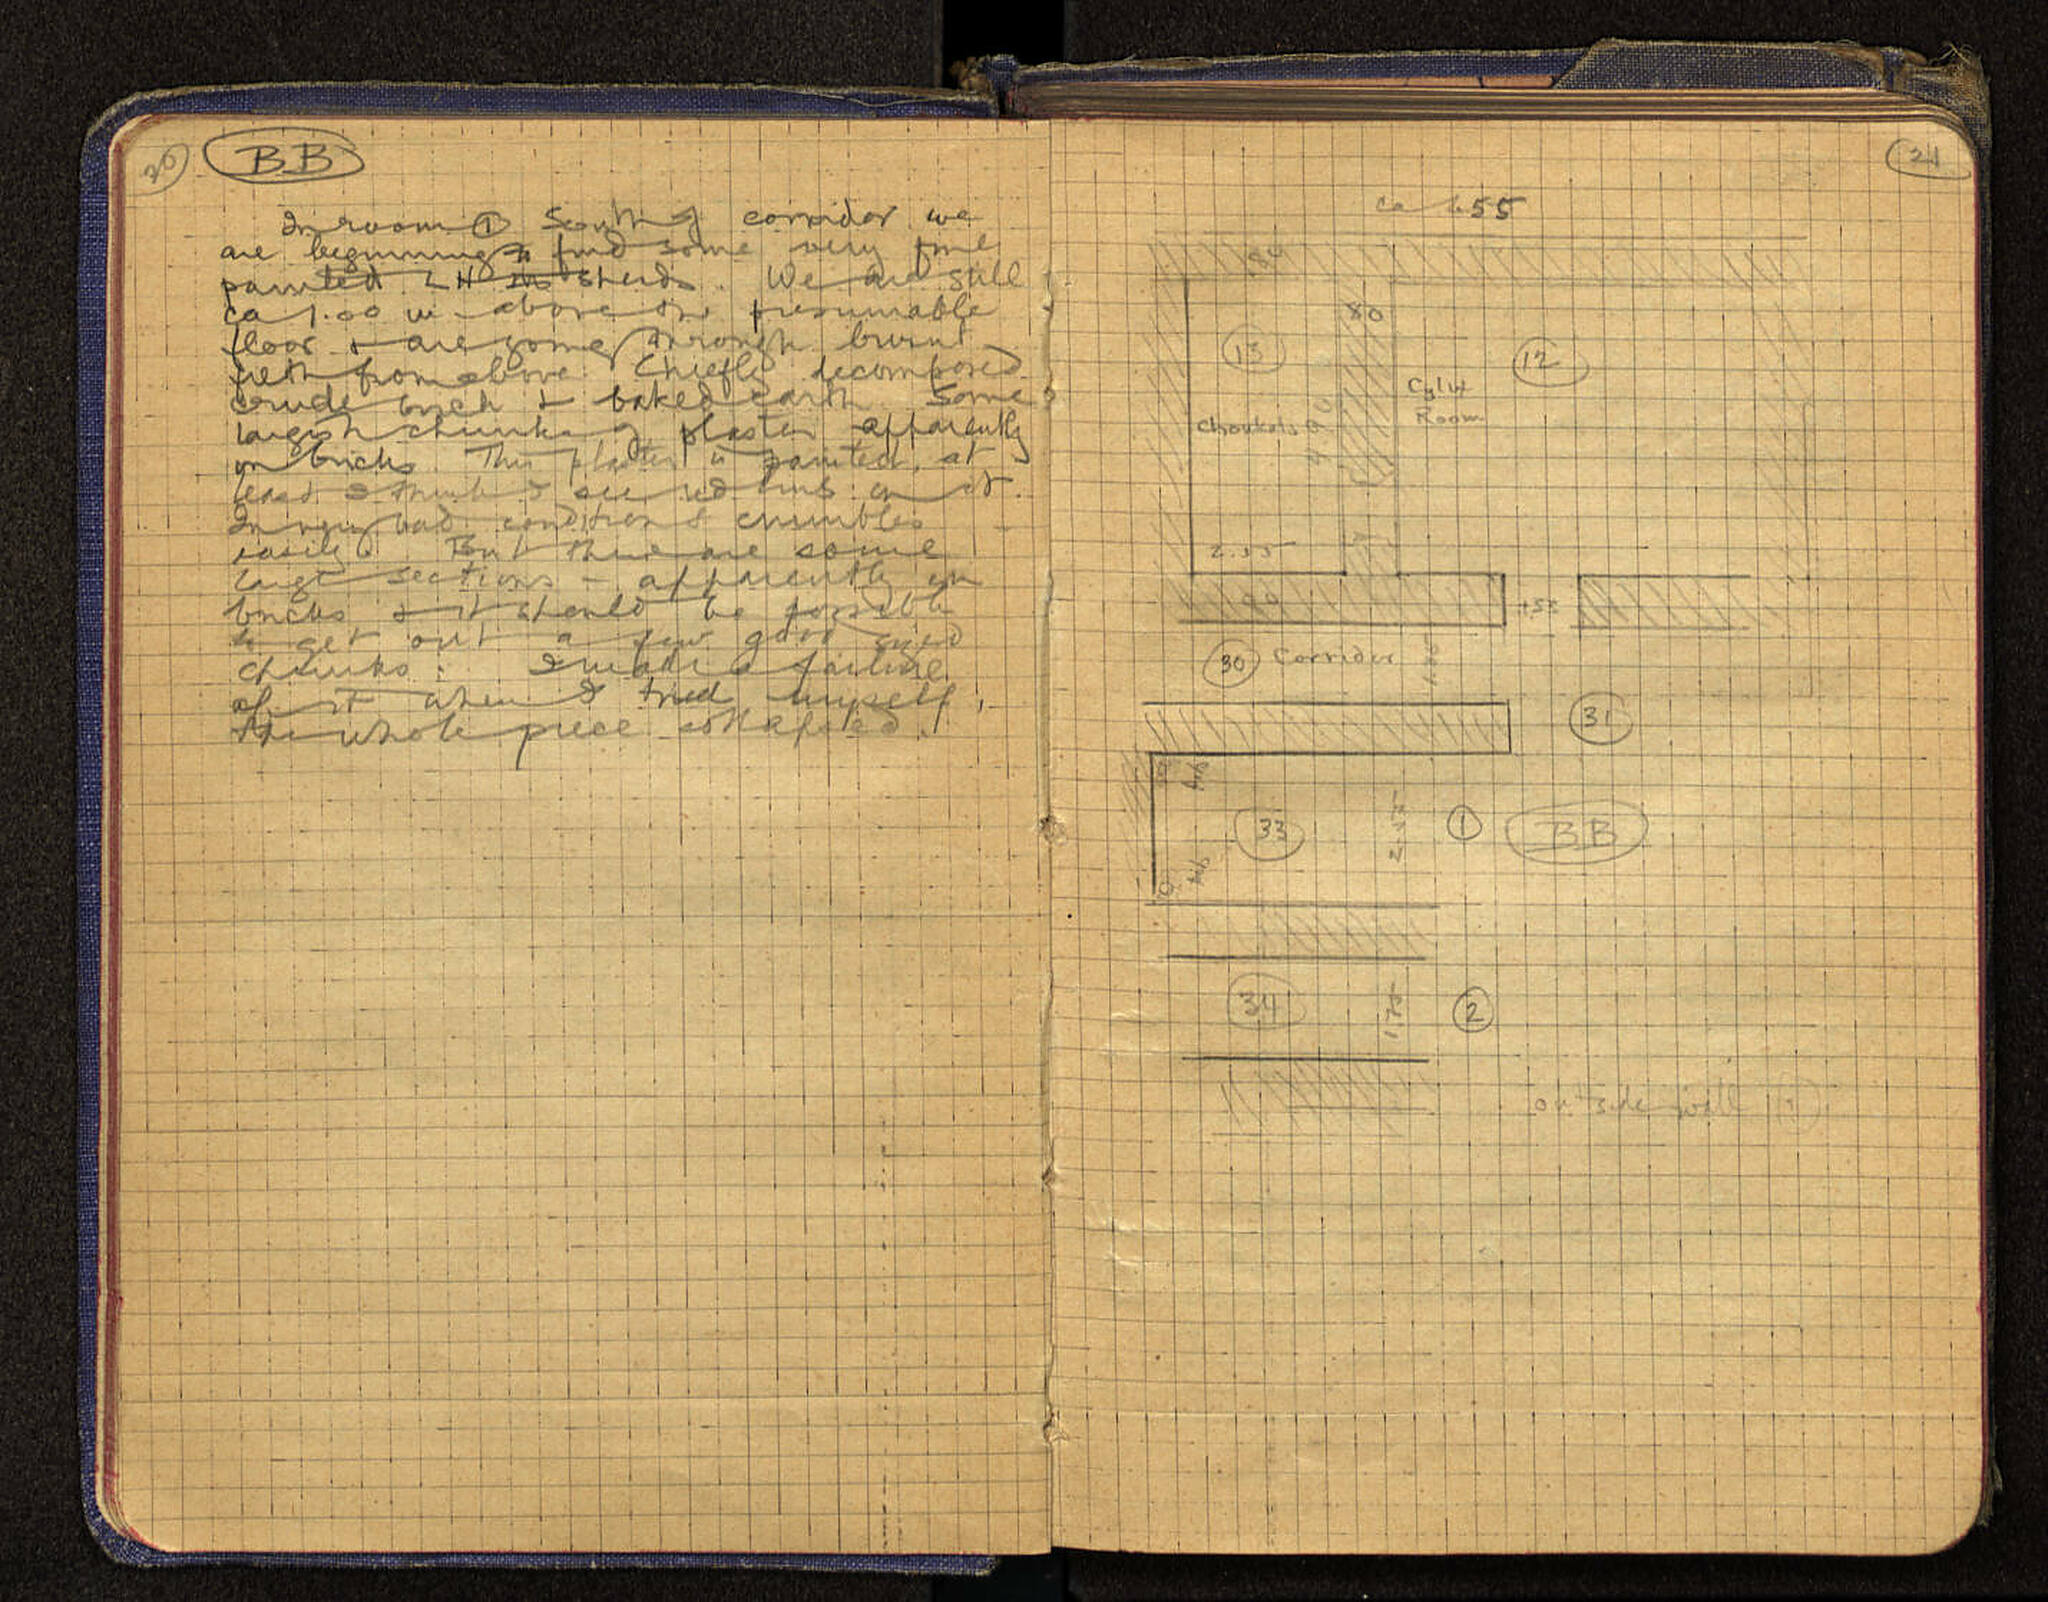 20
BB
In room 1 South of corridor we
are beginning to find some very fine
painted LH sherds. We are still
ca 1.00 m above the presumable
floor & are going through burnt
from above. Chiefly decomposed
crude brick & baked earth. Some
largish chunks of plaster apparently
on bricks. This plaster is painted, at
least I think I see red lines on it.
In very bad condition & crumbles
easily. But there are some
large sections - apparently on
bricks & it should be possible
to get out a few good sized
chunks. I made a failure
of it when I tried myself,
the whole piece collapsed.
21
ca 55
80
13
12
Cylix
Room
2.55
30 Corridor
31
33
1
BB
34
1.75
2
outside wall